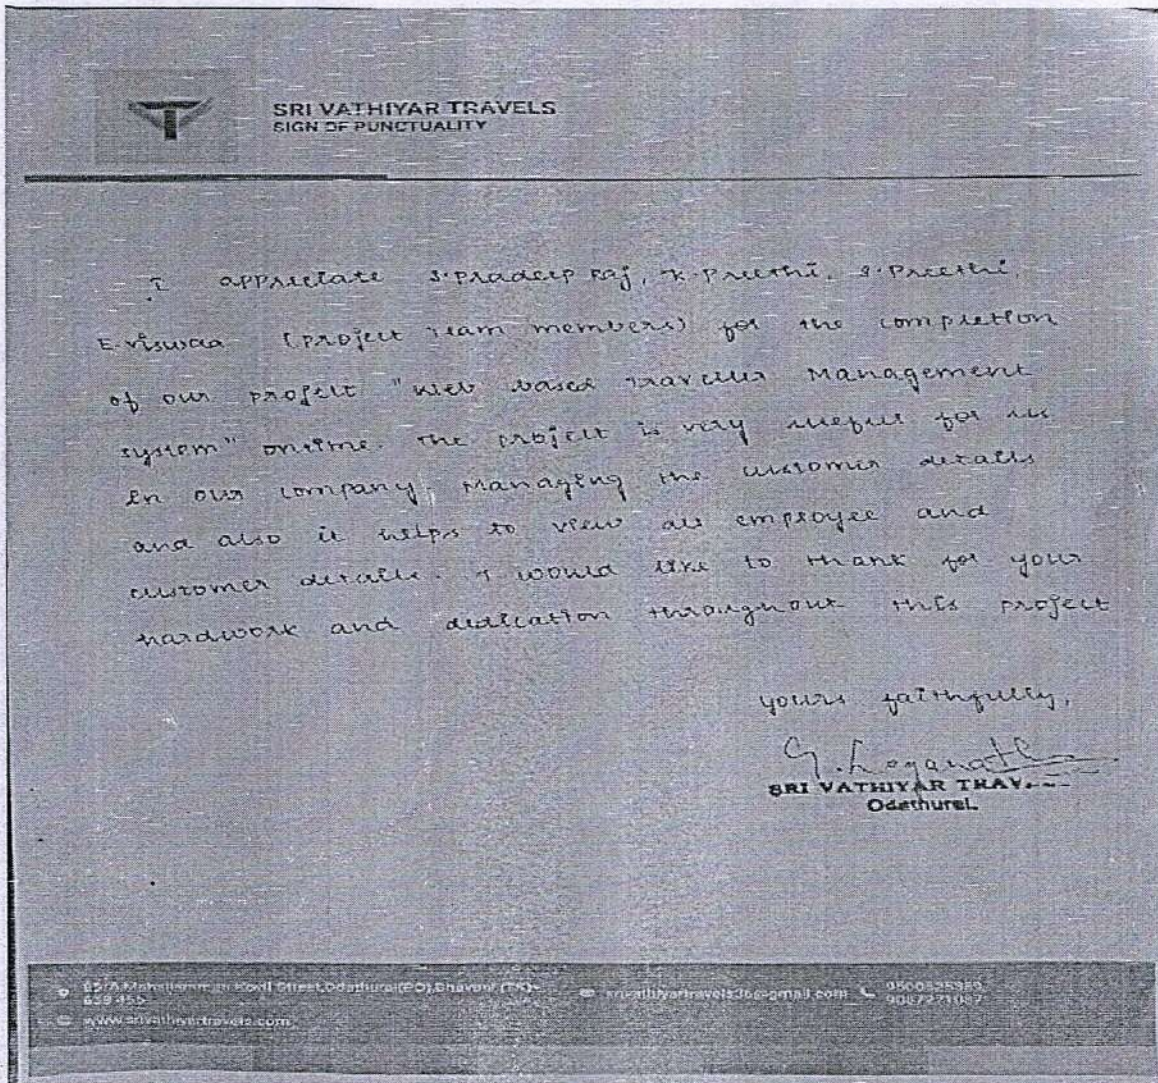 SRI VATHIYAR TRAVELS
SIGN OF PUNCTUALITY
I appreciate S.Pradeep Raj, K.Preethi, S.Preethi,
E.Viswaa (project team members) for the completion
of our project "Web based Traveller Management
system" ontime. The project is very useful for us
in our company. Managing the customer details
and also it helps to view all employee and
customer details. I would like to thank for your
hardwork and dedication throughout this project
yours faithfully,
G. Loganath
SRI VATHIYAR TRAV
Odathurai.
Street, Odathurai(PO), Bhavani (TK)-
638 455
www.srivathiyartravels.com